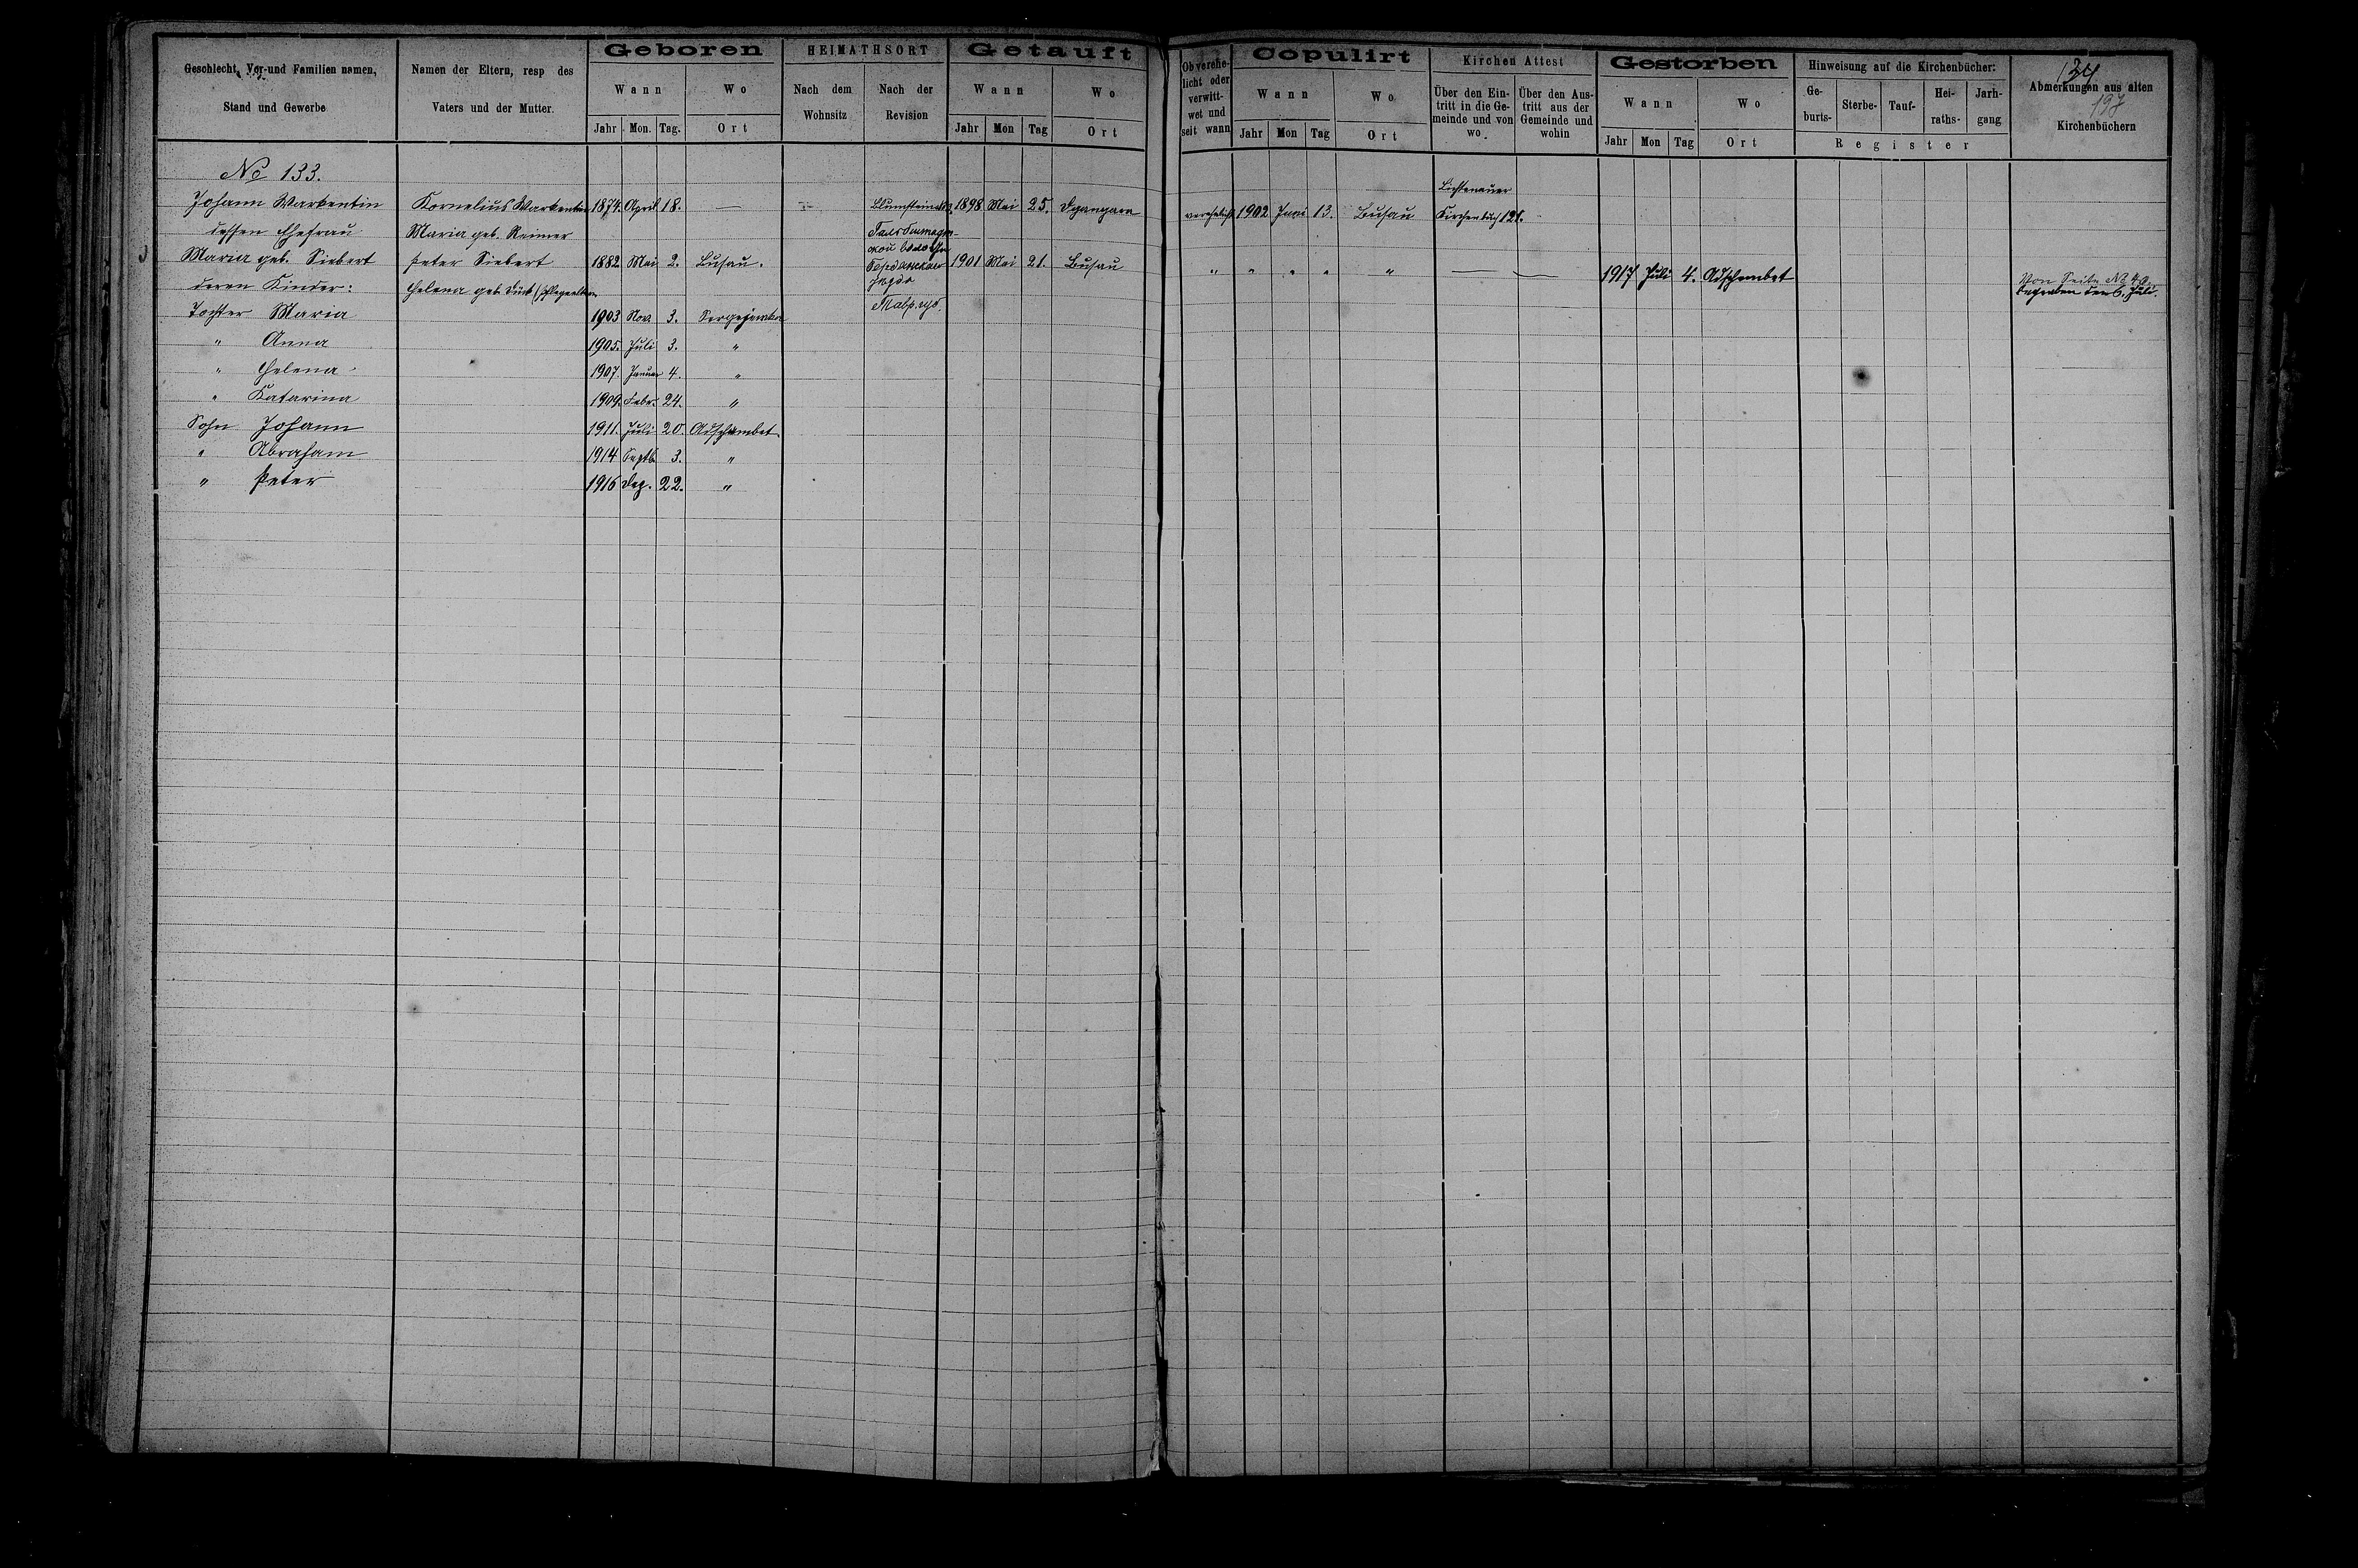 Geschlecht, Vor-und Familien namen,
Stand und Gewerbe
Namen der Eltern, resp des
Vaters und der Mutter.
Geboren
Wann
Jahr Mon. Tag.
Wo
Ort
HEIMATHSORT
Nach dem
Wohnsitz
Nach der
Revision
Getauft
Wann
Jahr Mon Tag
Wo
Ort
Ob verehe-
licht oder
verwitt-
wet und
seit wann
Copulirt
Wann
Jahr Mon Tag
Wo
Ort
Kirchen Attest
Über den Ein-
tritt in die Ge-
meinde und von
wo.
Über den Aus-
tritt aus der
Gemeinde und
wohin
Gestorben
Wann
Jahr Mon Tag
Wo
Ort
Hinweisung auf die Kirchenbücher:
Ge-
burts-
Sterbe-
Tauf-
Hei-
raths-
Jarh-
gang
Register
134
Abmerkungen aus alten
197
Kirchenbüchern
No 133.
Lichtenauer
Johann Warkentin Kornelius Warkentin 1874. April 18. — Blumstein 1898 Mai 25. verehelicht 1902 Juni 13. Busau Kirchenbuch 121.
dessen Ehefrau Maria geb. Reimer
Maria geb. Siebert Peter Siebert 1882 Mai 2. Busau. 1901 Mai 21. Busau " " " " " — — 1917 Juli 4. Adschambet Von Seite No
deren Kinder: Helena geb. Dück (Pflegeeltern begraben den 6. Juli.
Tochter Maria 1903 Nov. 3. Таврич.губ.
" Anna 1905. Juli 3. "
" Helena 1907. Januar 4. "
" Katarina 1909. Febr. 24. "
Sohn Johann 1911. Juli 20. Adschambet
" Abraham 1914 Septb. 3. "
" Peter 1916 Dez. 22. "